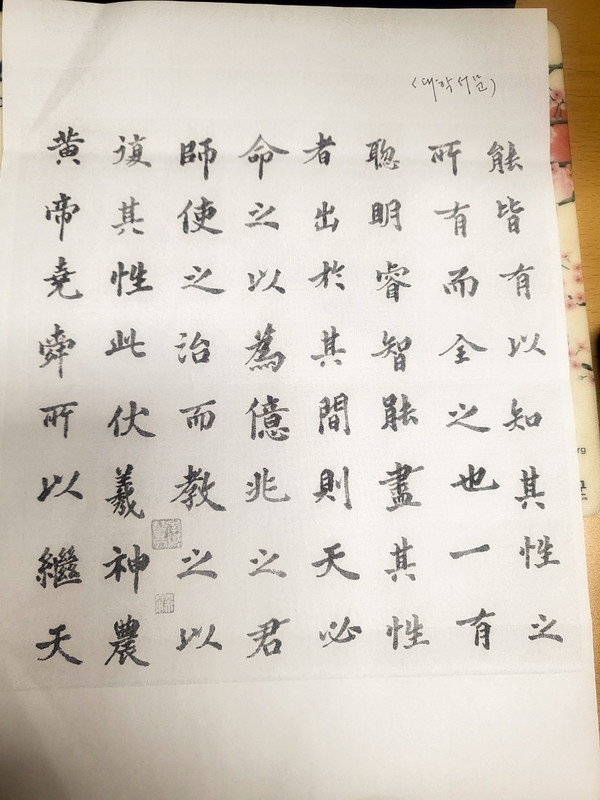 (대학서문)
能皆有以知其性之
所有而全之也一有
聰明睿智能盡其性
者出於其間則天必
命之以爲億兆之君
師使之治而教之以
復其性此伏羲神農
黃帝堯舜所以繼天